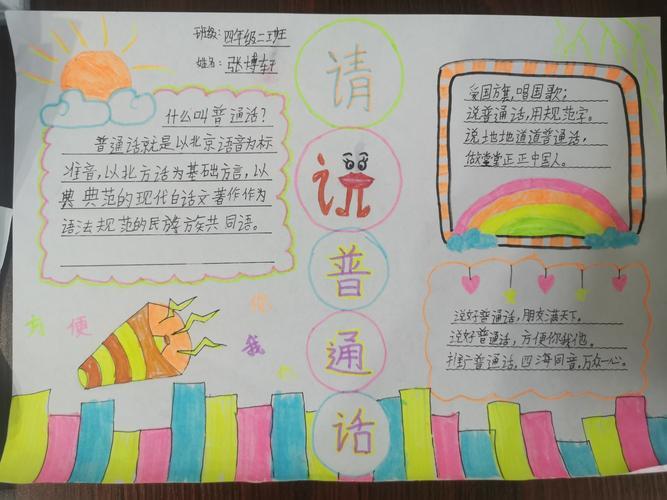 班级：四年级二班
姓名：张博轩
请
说
普
通
话
什么叫普通话？
普通话就是以北京语音为标
准音，以北方话为基础方言，以
典典范的现代白话文著作作为
语法规范的民族族共同语。
爱国旗，唱国歌；
说普通话，用规范字。
说地地道道普通话，
做堂堂正正中国人。
说好普通话，朋友满天下。
说好普通话，方便你我他。
推广普通话，四海同音，万众一心。
方便
你
我